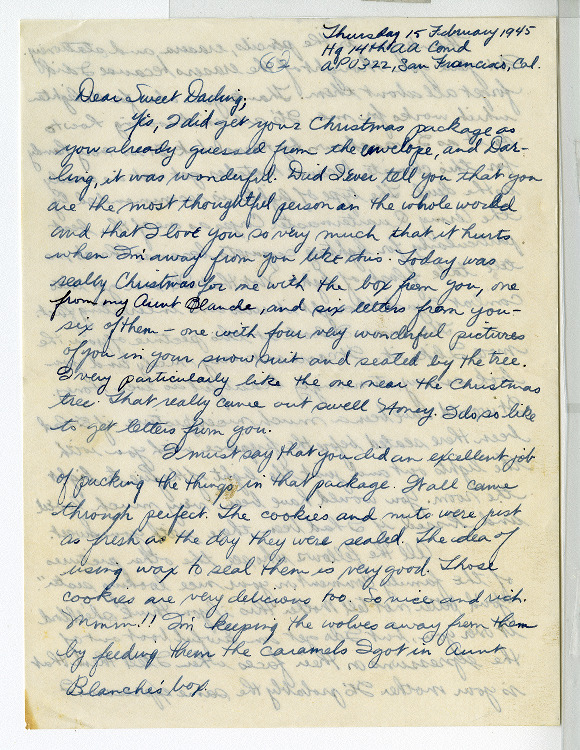 Thursday 15 February 1945
Hq 14th AA Comd
62
APO 322, San Francisco, Cal.
Dear Sweet Darling;
Yes, I did get your Christmas package as
you already guessed from the envelope, and Dar-
ling, it was wonderful. Did I ever tell you that you
are the most thoughtful person in the whole world
and that I love you so very much that it hurts
when I'm away from you like this. Today was
really Christmas for me with the box from you, one
from my Aunt Blanche, and six letters from you -
six of them - one with four very wonderful pictures
of you in your snow suit and seated by the tree.
I very particularly like the one near the Christmas
tree. That really came out swell Honey. I do so like
to get letters from you.
I must say that you did an excellent job
of packing the things in that package. It all came
through perfect. The cookies and nuts were just
as fresh as the day they were sealed. The idea of
using wax to seal them is very good. Those
cookies are very delicious too. So nice and rich.
Mmmm!! I'm keeping the wolves away from them
by feeding them the caramels I got in Aunt
Blanche's box.